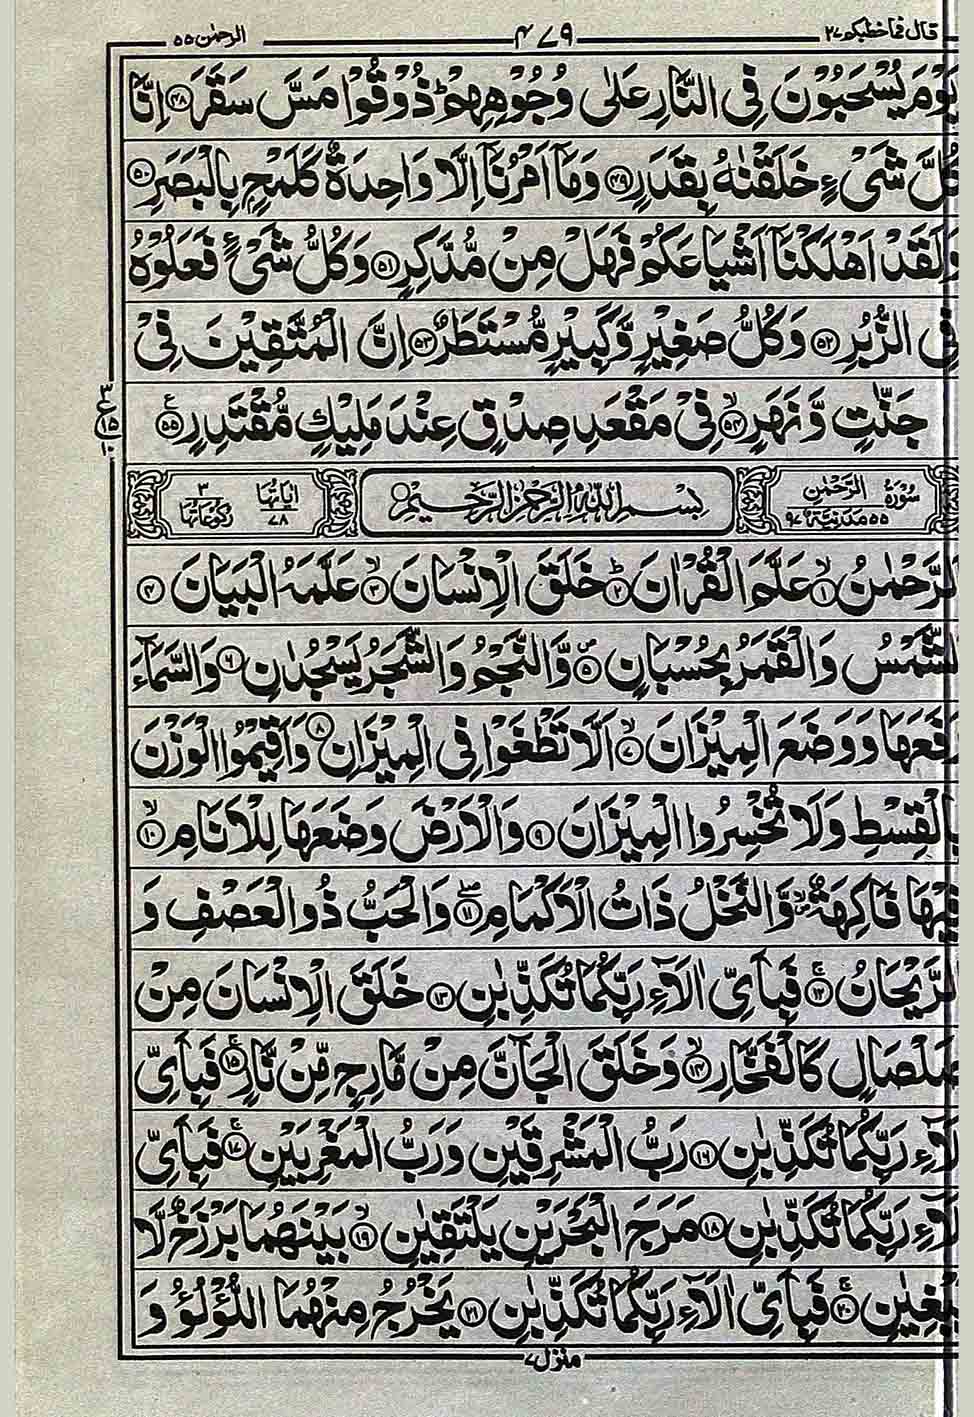 قال فما خطبكم ٢٧
٤٧٩
الرحمٰن ٥٥
يَوْمَ يُسْحَبُوْنَ فِى النَّارِ عَلٰى وُجُوْهِهِمْ ؕ ذُوْقُوْا مَسَّ سَقَرَ ﴿٤٨﴾ اِنَّا
كُلَّ شَىْءٍ خَلَقْنٰهُ بِقَدَرٍ ﴿٤٩﴾ وَمَاۤ اَمْرُنَاۤ اِلَّا وَاحِدَةٌ كَلَمْحٍۢ بِالْبَصَرِ ﴿٥٠﴾
وَلَقَدْ اَهْلَكْنَاۤ اَشْيَاعَكُمْ فَهَلْ مِنْ مُّدَّكِرٍ ﴿٥١﴾ وَكُلُّ شَىْءٍ فَعَلُوْهُ
فِى الزُّبُرِ ﴿٥٢﴾ وَكُلُّ صَغِيْرٍ وَّكَبِيْرٍ مُّسْتَطَرٌ ﴿٥٣﴾ اِنَّ الْمُتَّقِيْنَ فِىْ
جَنّٰتٍ وَّنَهَرٍ ﴿٥٤﴾ فِىْ مَقْعَدِ صِدْقٍ عِنْدَ مَلِيْكٍ مُّقْتَدِرٍ ﴿٥٥﴾
سُوْرَةُ الرَّحْمٰنِ ٥٥ مَدَنِيَّةٌ ٩٧
بِسْمِ اللّٰهِ الرَّحْمٰنِ الرَّحِيْمِ
اٰيَاتُهَا ٧٨
رُكُوْعَاتُهَا ٣
اَلرَّحْمٰنُ ﴿١﴾ عَلَّمَ الْقُرْاٰنَ ﴿٢﴾ خَلَقَ الْاِنْسَانَ ﴿٣﴾ عَلَّمَهُ الْبَيَانَ ﴿٤﴾
اَلشَّمْسُ وَالْقَمَرُ بِحُسْبَانٍ ﴿٥﴾ وَّالنَّجْمُ وَالشَّجَرُ يَسْجُدٰنِ ﴿٦﴾ وَالسَّمَآءَ
رَفَعَهَا وَوَضَعَ الْمِيْزَانَ ﴿٧﴾ اَلَّا تَطْغَوْا فِى الْمِيْزَانِ ﴿٨﴾ وَاَقِيْمُوا الْوَزْنَ
بِالْقِسْطِ وَلَا تُخْسِرُوا الْمِيْزَانَ ﴿٩﴾ وَالْاَرْضَ وَضَعَهَا لِلْاَنَامِ ﴿١٠﴾
فِيْهَا فَاكِهَةٌ وَّالنَّخْلُ ذَاتُ الْاَكْمَامِ ﴿١١﴾ وَالْحَبُّ ذُو الْعَصْفِ وَ
الرَّيْحَانُ ﴿١٢﴾ فَبِاَىِّ اٰلَآءِ رَبِّكُمَا تُكَذِّبٰنِ ﴿١٣﴾ خَلَقَ الْاِنْسَانَ مِنْ
صَلْصَالٍ كَالْفَخَّارِ ﴿١٤﴾ وَخَلَقَ الْجَآنَّ مِنْ مَّارِجٍ مِّنْ نَّارٍ ﴿١٥﴾ فَبِاَىِّ
اٰلَآءِ رَبِّكُمَا تُكَذِّبٰنِ ﴿١٦﴾ رَبُّ الْمَشْرِقَيْنِ وَرَبُّ الْمَغْرِبَيْنِ ﴿١٧﴾ فَبِاَىِّ
اٰلَآءِ رَبِّكُمَا تُكَذِّبٰنِ ﴿١٨﴾ مَرَجَ الْبَحْرَيْنِ يَلْتَقِيٰنِ ﴿١٩﴾ بَيْنَهُمَا بَرْزَخٌ لَّا
يَبْغِيٰنِ ﴿٢٠﴾ فَبِاَىِّ اٰلَآءِ رَبِّكُمَا تُكَذِّبٰنِ ﴿٢١﴾ يَخْرُجُ مِنْهُمَا اللُّؤْلُؤُ وَ
منزل ٧